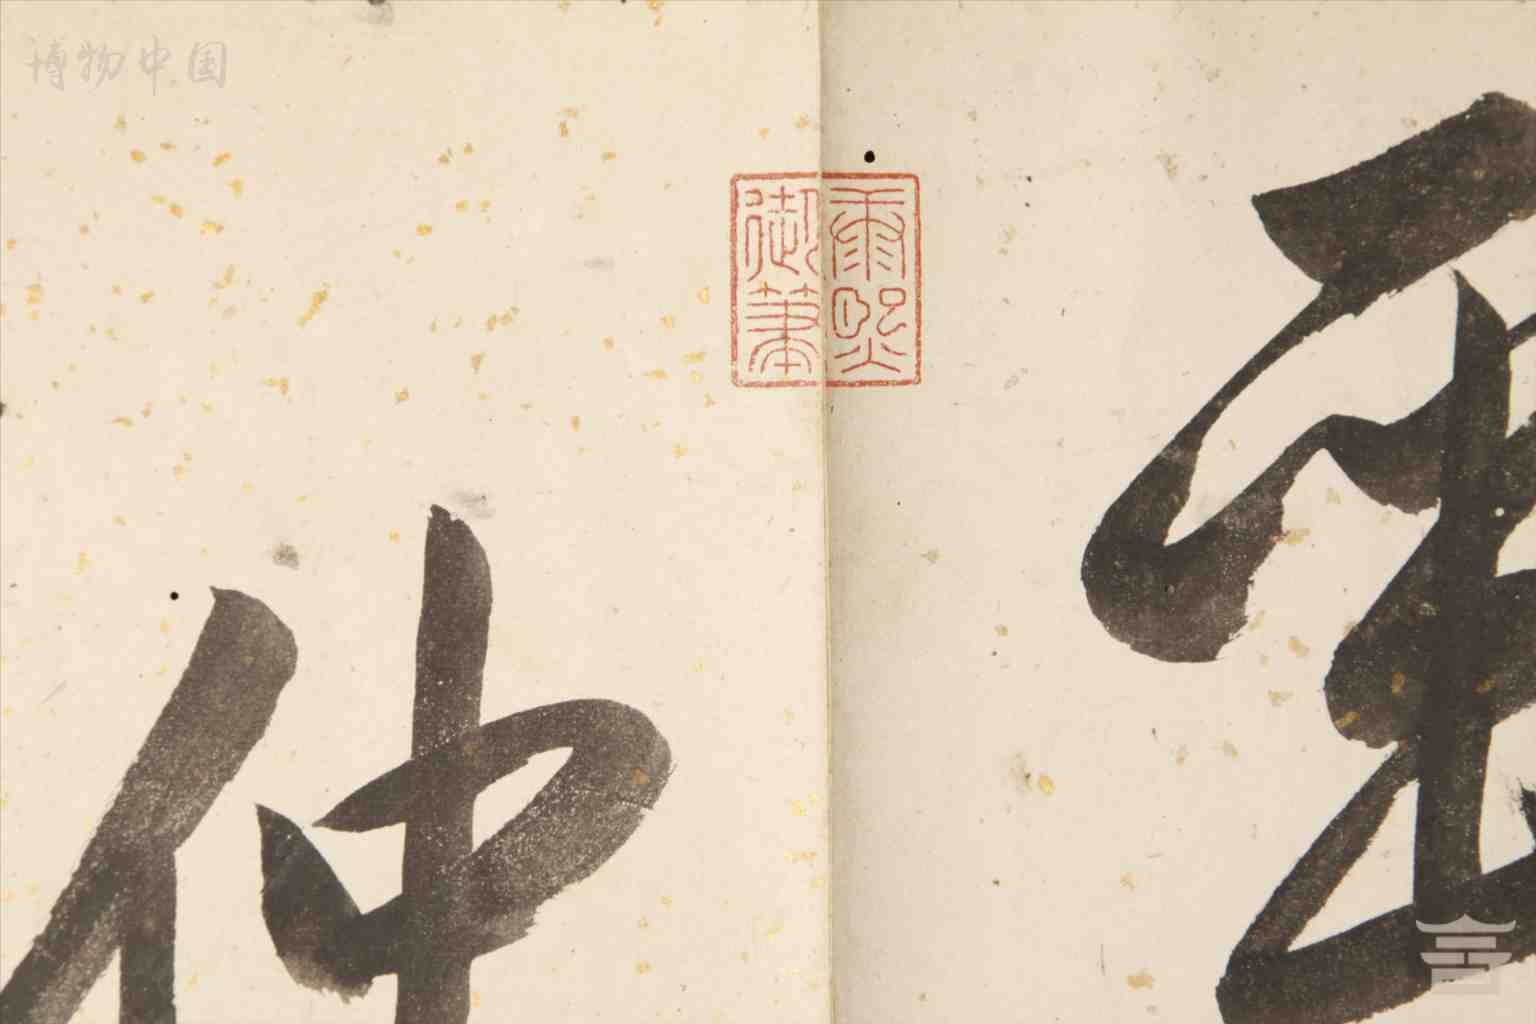 博物中国
康熙
御筆
仲